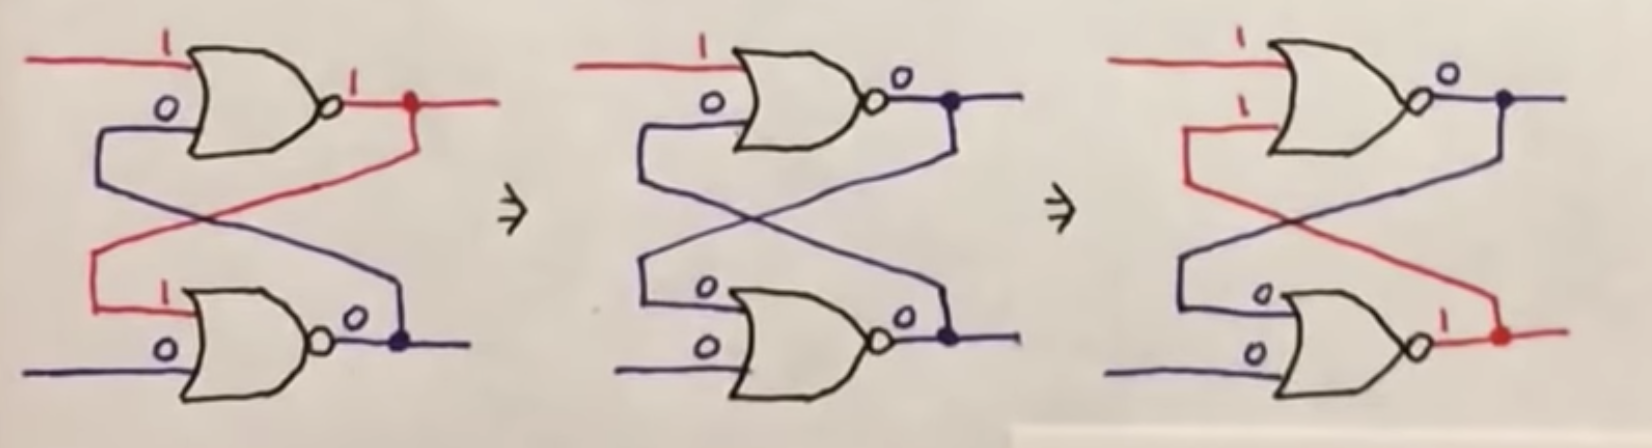 1 1 0 1 0 0
1 0 0 0 0 0
1 1 0 0 0 1